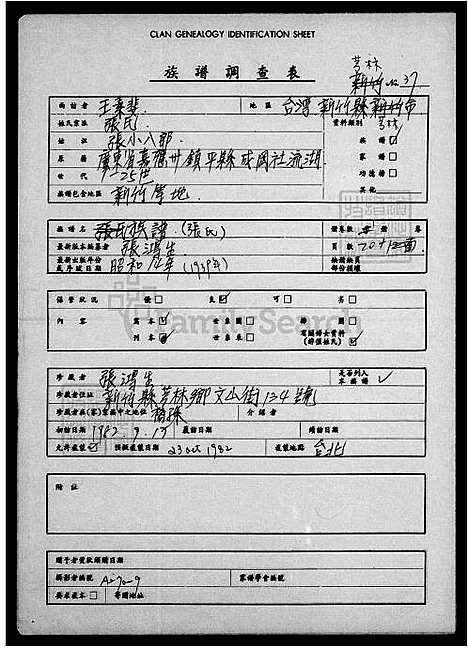 CLAN GENEALOGY IDENTIFICATION SHEET
族譜調查表
芎林
新竹 No. 37
面訪者 王秉斐 地區 台灣 新竹縣
姓氏宗族 張氏 資料類別 芎林
始祖 張小八郎 族譜
原籍 廣東省嘉應州鎮平縣 流湖 家譜
世代 1–25世 功德榜
族譜包含地區 新竹等地 其他
族譜名 張氏族譜 (張氏) 卷
最新版本編著者 張鴻生 頁數 20+12面
最新出版年份或序跋日期 昭和14年 (1939年)
保管狀況 優 良 可 劣
內容 寫本 世系圖
刊本 世系表
珍藏者 張鴻生 是否列入本族譜
珍藏者住址 新竹縣芎林鄉文山街134號
介紹者
初訪日期 1982.9.13 覆訪日期 續訪日期
允許攝製 預擬攝製日期 23 Oct 1982 攝製地點 台北
附註
攝影者編號 A-70-9 家譜學會編號
FamilySearch